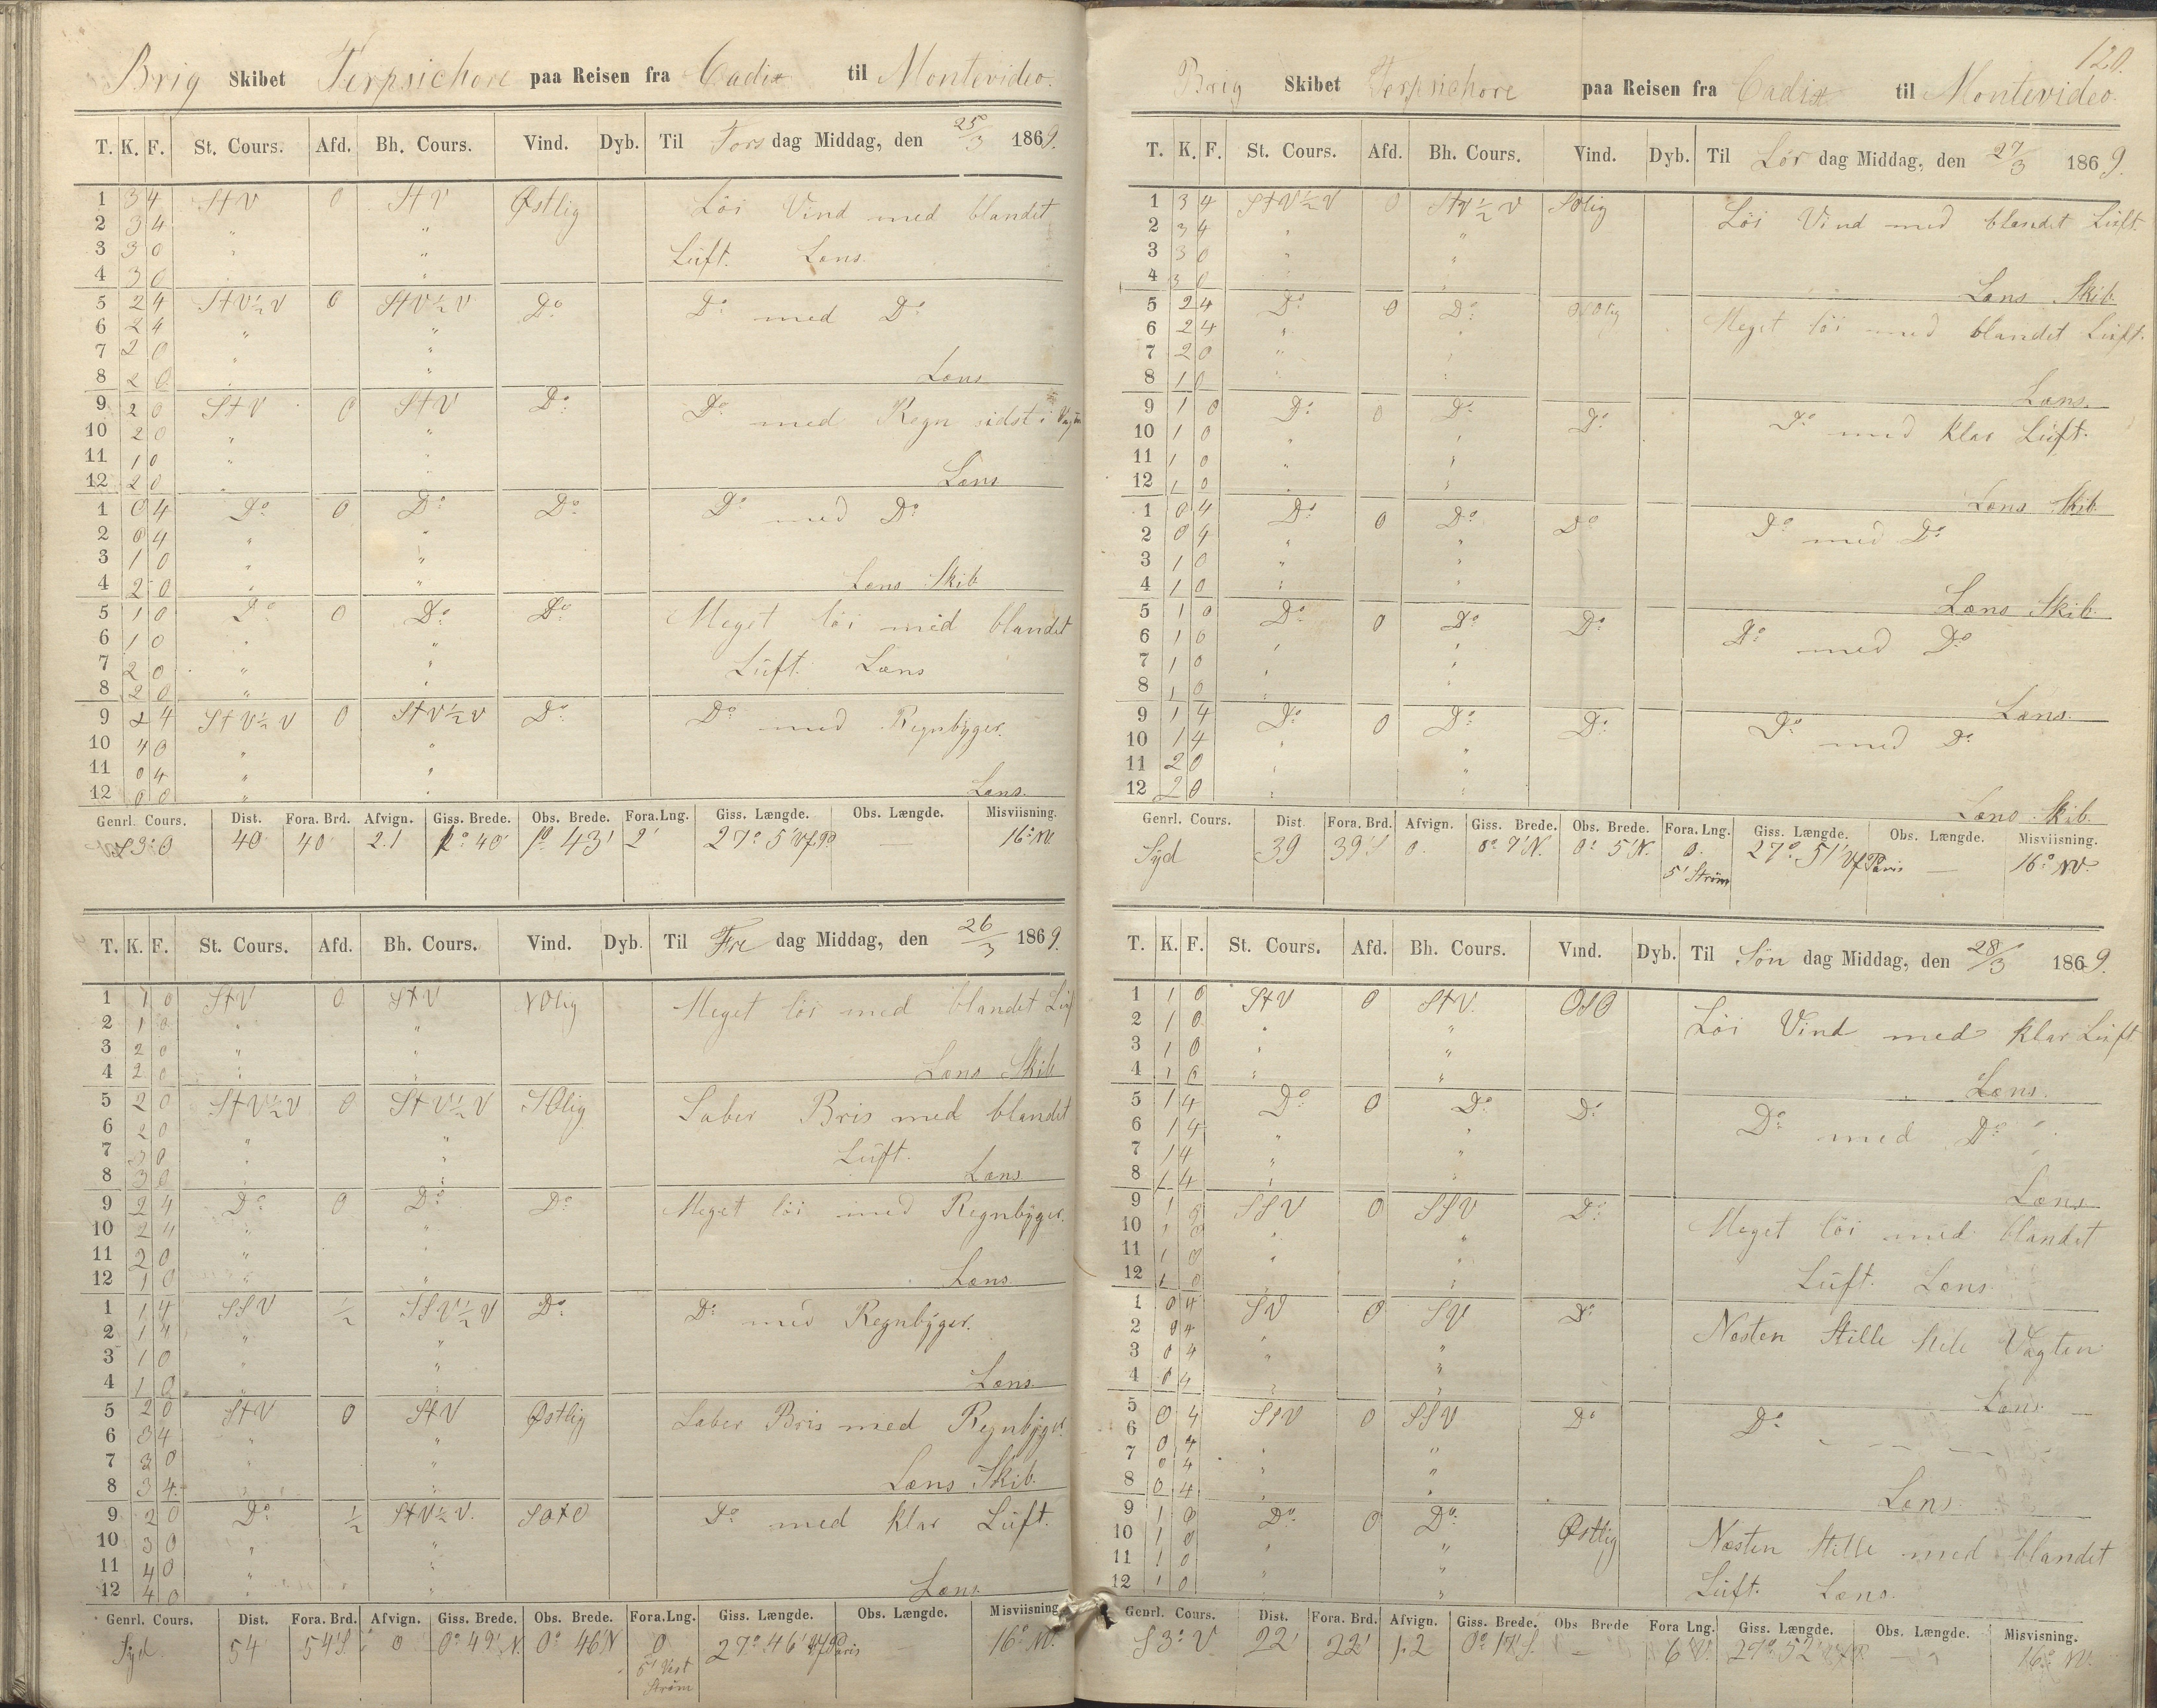 Brig Skibet Terpsichore paa Reisen fra Cadix til Montevideo.
T. K. F. St. Cours. Afd. Bh. Cours. Vind. Dyb. Til Torsdag Middag, den 25/3 1869.
1 3 4 StV 0 StV Østlig Löi Vind med blandet
2 3 4 " "
3 3 0 " " Lüft. Læns.
4 3 0 "
5 2 4 StV½V 0 StV½V Do Do med Do
6 2 4 " "
7 2 0 " "
8 2 0 " " Læns
9 2 0 StV 0 StV Do Do med Regn sidst i
10 2 0 " "
11 1 0 " "
12 2 0 Læns
1 0 4 Do 0 Do Do Do med Do
2 0 4 " "
3 1 0 " "
4 2 0 " " Læns Skib
5 1 0 Do 0 Do Do Meget löi med blandet
6 1 0 " "
7 2 0 " " Lüft. Læns
8 2 0 " "
9 2 4 StV½V 0 StV½V Do Do med Regnbyger.
10 4 0 " "
11 0 4 " "
12 0 0 " " Læns.
Genrl. Cours. Dist. Fora. Brd. Afvign. Giss. Brede. Obs. Brede. Fora. Lng. Giss. Længde. Obs. Længde. Misviisning.
S 3° 0 40 40 2.1 1° 40' 1° 43' 2' 27° 5' — 16° NV.
T. K. F. St. Cours. Afd. Bh. Cours. Vind. Dyb. Til Fredag Middag, den 26/3 1869.
1 1 0 StV 0 StV NOlig Meget löi med blandet Lüf
2 1 0 " "
3 2 0 " "
4 2 0 " " Læns Skib
5 2 0 StV½V 0 StV½V SOlig Laber Bris med blandet
6 2 0 " "
7 3 0 " " Lüft.
8 3 0 " " Læns
9 2 4 Do 0 Do Do Meget löi med Regnbyger.
10 2 4 " "
11 2 0 " "
12 1 0 " " Læns.
1 1 4 SSV ½ SSV½V Do Do med Regnbyger.
2 1 4 " "
3 1 0 " "
4 1 0 " " Læns.
5 2 0 StV 0 StV Østlig Laber Bris med Regnbyger
6 3 4 " "
7 3 0 " "
8 3 4 " " Læns Skib.
9 2 0 Do ½ StV½V. SOtO Do med klar Lüft.
10 3 0 " "
11 4 0 " "
12 4 0 " " Læns.
Genrl. Cours. Dist. Fora. Brd. Afvign. Giss. Brede. Obs. Brede. Fora. Lng. Giss. Længde. Obs. Længde. Misviisning
Syd. 54 54'S. 0 0° 49' N. 0° 46'N 0 27° 46' Vf Paris — 16° NV.
5' Vest
Ström
120.
Brig Skibet Terpsichore paa Reisen fra Cadix til Montevideo.
T. K. F. St. Cours. Afd. Bh. Cours. Vind. Dyb. Til Lördag Middag, den 27/3 1869.
1 3 4 StV½V 0 StV½V SOlig Löi Vind med blandet Lüft.
2 3 4 " "
3 3 0 " "
4 3 0 " " Læns Skib
5 2 4 Do 0 Do OSOlig Meget löi med blandet Lüft.
6 2 4 " "
7 2 0 " "
8 1 0 " " Læns.
9 1 0 Do 0 Do Do Do med klar Lüft.
10 1 0 " "
11 1 0 " "
12 1 0 " " Læns Skib
1 0 4 Do 0 Do Do Do med Do
2 0 4 " "
3 1 0 " "
4 1 0 " " Læns Skib
5 1 0 Do 0 Do Do Do med Do
6 1 0 " "
7 1 0 " "
8 1 0 " " Læns.
9 1 4 Do 0 Do Do Do med Do
10 1 4 " "
11 2 0 " "
12 2 0 " " Læns Skib.
Genrl. Cours. Dist. Fora. Brd. Afvign. Giss. Brede. Obs. Brede. Fora. Lng. Giss. Længde. Obs. Længde. Misviisning.
Syd 39 39'S 0. 0° 7'N. 0° 5'N. 0. 27° 51' Vf Paris — 16° NV.
5' Ström
T. K. F. St. Cours. Afd. Bh. Cours. Vind. Dyb. Til Söndag Middag, den 28/3 1869.
1 1 0 StV 0 StV. OSO Löi Vind med klar Lüft
2 1 0 " "
3 1 0 " "
4 1 0 " " Læns.
5 1 4 Do 0 Do Do Do med Do
6 1 4 " "
7 1 4 " "
8 1 4 " " Læns
9 1 0 SSV 0 SSV Do Meget löi med blandet
10 1 0 " "
11 1 0 " " Lüft. Læns
12 1 0 " "
1 0 4 SV 0 SV Do Næsten Stille hele Vagten
2 0 4 " "
3 0 4 " "
4 0 4 " " Læns
5 0 4 SSV 0 SSV Do Do
6 0 4 " "
7 0 4 " "
8 0 4 " " Læns
9 1 0 Do 0 Do Østlig Næsten Stille med blandet
10 1 0 " "
11 1 0 " " Lüft. Læns.
12 1 0 " "
Genrl. Cours. Dist. Fora. Brd. Afvign. Giss. Brede. Obs Brede Fora Lng. Giss. Længde. Obs. Længde. Misvisning.
S 3° V 22' 22' 1.2 0° 17'S. — 6'V. 27° 52' — 16° NV.